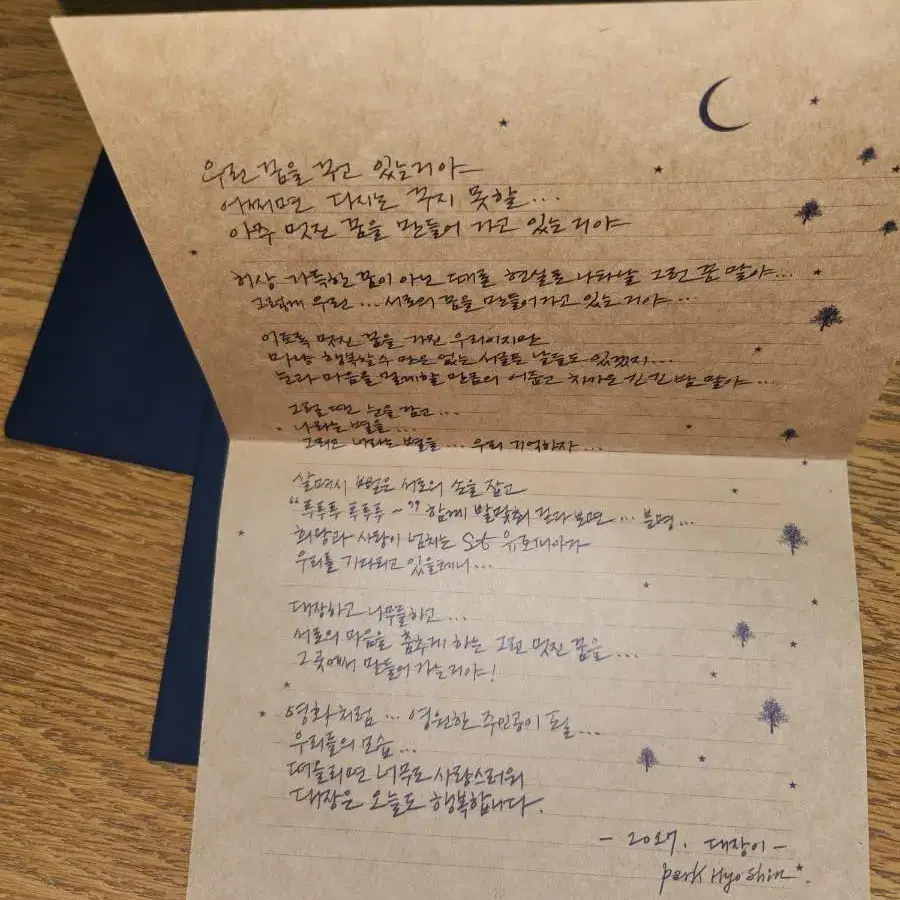 우린 꿈을 꾸고 있는거야
어쩌면 다시는 꾸지 못할...
아주 멋진 꿈을 만들어 가고 있는거야
허상 가득한 꿈이 아닌 때론 현실로 나타날 그런 꿈 말야...
그렇게 우린... 서로의 꿈을 만들어가고 있는거야...
이토록 멋진 꿈을 가진 우리이지만
마냥 행복할수 만은 없는 서글픈 날들도 있겠지...
눈과 마음을 멀게할 만큼의 어둡고 차가운 긴긴 밤 말야...
그럴 땐 눈을 감고...
나라는 별을...
그리고 너라는 별을... 우리 기억하자...
살며시 뻗은 서로의 손을 잡고
"루루루 루루루~" 함께 발맞춰 걷다보면... 분명...
희망과 사랑이 넘치는 St 유토피아가
우리를 기다리고 있을테니...
대장하고 나무들하고...
서로의 마음을 춤추게 하는 그런 멋진 꿈을...
그곳에서 만들어 가는거야!
영화처럼... 영원한 주인공이 될...
우리들의 모습...
떠올리면 너무도 사랑스러워
대장은 오늘도 행복합니다.
- 2017. 대장이 -
park Hyo Shin